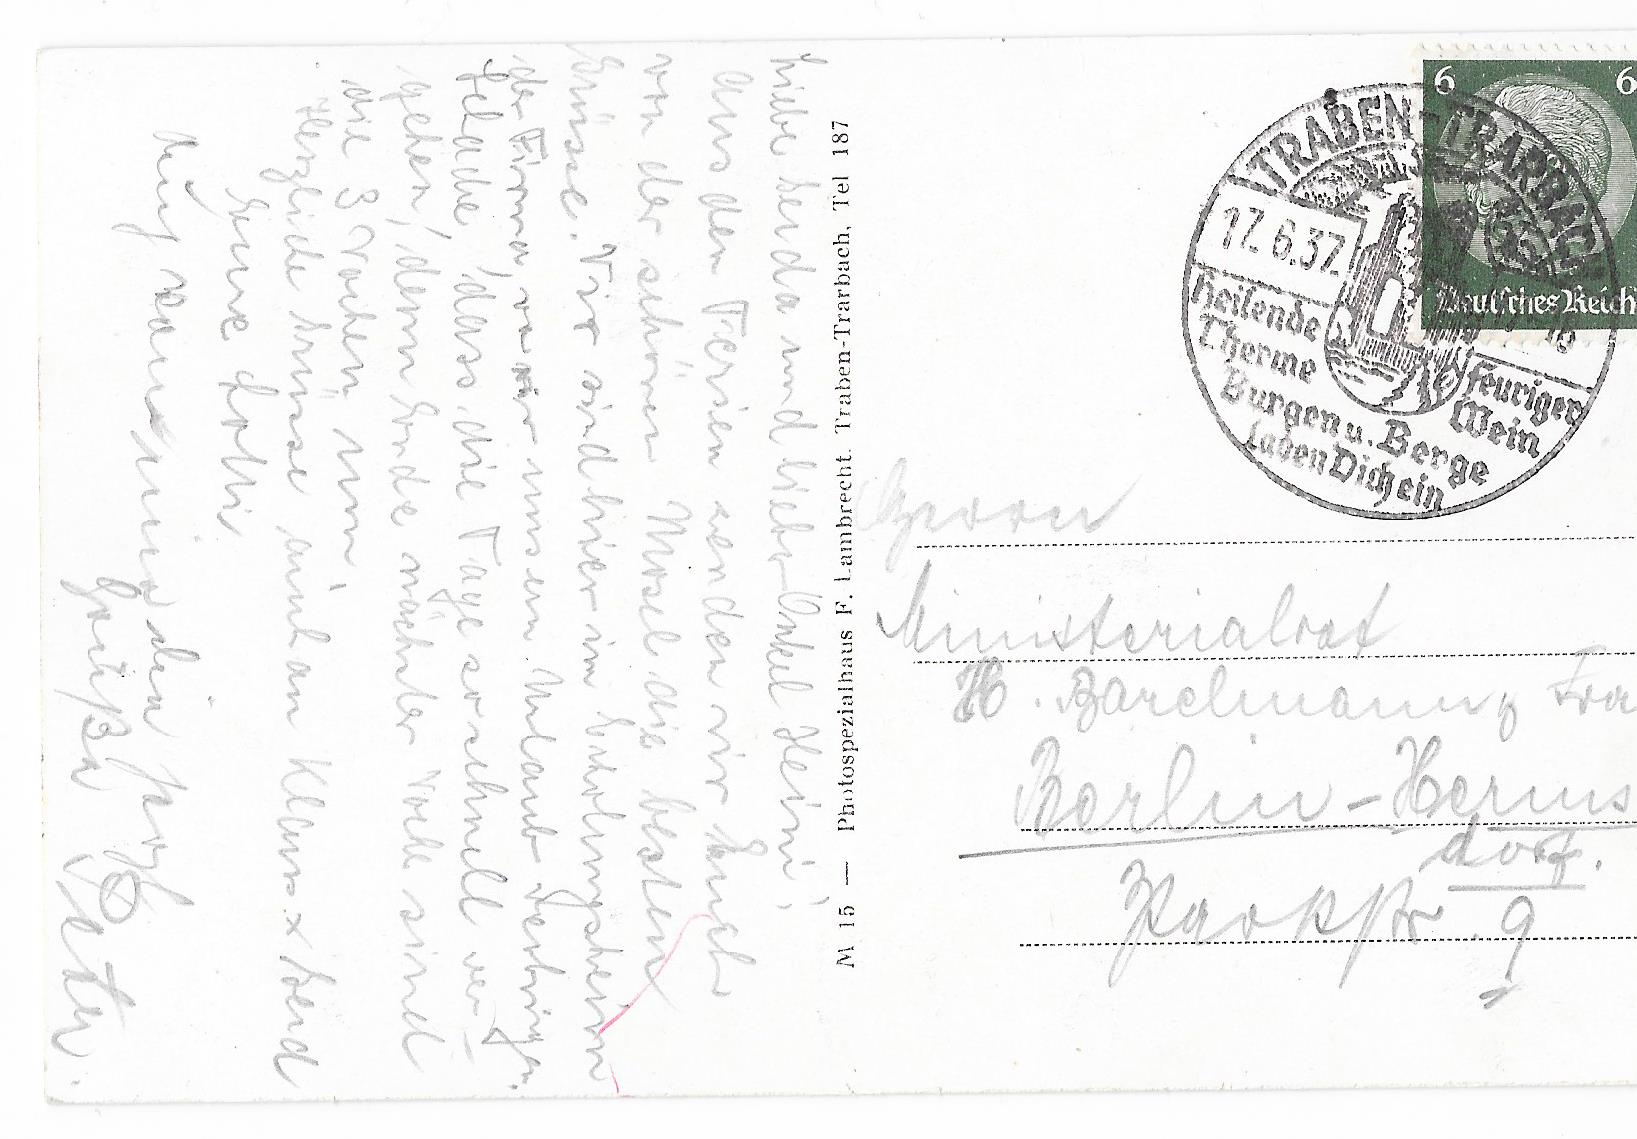 Liebe Gerda und lieber Onkel Heini!
Aus den Ferien senden wir Euch
von der schönen Mosel die besten
Grüsse. Wir sind hier im Erholungsheim
der Firma, wo wir unsern Urlaub verbringen.
Schade, dass die Tage so schnell ver-
gehen, denn Ende nächster Woche sind
die 3 Wochen um.
Herzliche Grüsse auch an Klaus x Gerd
Eure Lotti
Auch von mir
Grüßen
Peter.
M 15 — Photospezialhaus F. Lambrecht. Traben-Trarbach, Tel 187
TRABEN-TRARBACH
17.6.37.
Heilende
Therme
feuriger
Wein
Burgen u. Berge
Laden Dich ein
6 6
Deutsches Reich
Herrn
Ministerialrat
H. Barelmann, Fra
Berlin-Herms
dorf.
Parkstr. 9